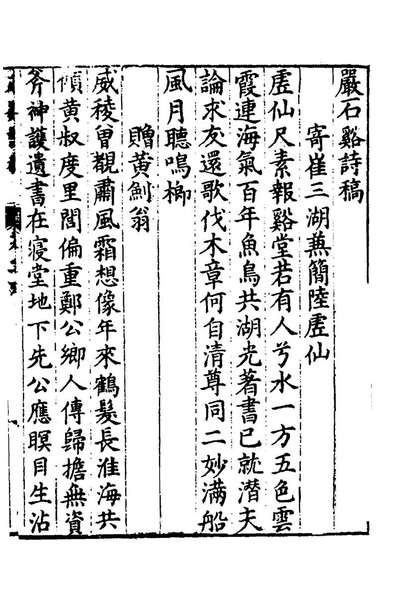 嚴石谿詩稿
寄崔三湖蕪簡陸虗仙
虗仙尺素報谿堂若有人兮水一方五色雲
霞連海氣百年魚鳥共湖光著書已就潛夫
論求友還歌伐木章何自清尊同二妙滿船
風月聽鳴榔
贈黃劍翁
威稜曾觀肅風霜想像年來鶴髮長淮海共
傾黃叔度里閭偏重鄭公鄉人傳歸擔無資
斧神護遺書在寢堂地下先公應瞑目生沾